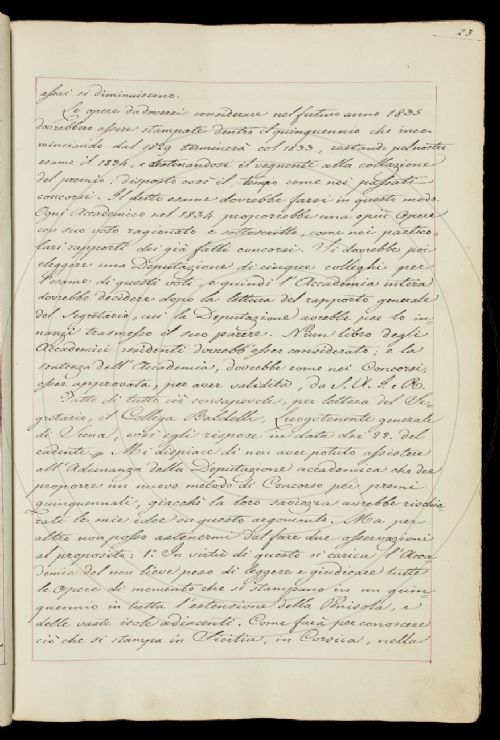 23
assai si diminuiscono.
Le opere da doversi considerare nel futuro anno 1835
dovrebbero essere stampate dentro il quinquennio che inco-
minciando dal 1829 terminerà col 1833, restando pel nostro
esame il 1834, e destinandosi il seguente alla collazione
del premio: disposto così il tempo come nei passati
concorsi. Il detto esame dovrebbe farsi in questo modo.
Ogni Accademico nel 1834 proporrebbe una o più Opere
con suo voto ragionato e sottoscritto, come nei partico-
lari rapporti dei già fatti concorsi. Si dovrebbe poi
eleggere una Deputazione di cinque colleghi per
l'esame di questi voti, e quindi l'Accademia intera
dovrebbe decidere dopo la lettura del rapporto generale
del Segretario, cui la Deputazione avrebbe per lo in-
nanzi trasmesso il suo parere. Niun libro degli
Accademici residenti dovrebb'esser considerato; e la
sentenza dell'Accademia, dovrebbe come nei Concorsi,
esser approvata, per aver validità, da S. A. I. e R.
Fatto di tutto ciò consapevole, per lettera del Se-
gretario, il Collega Baldelli, Luogotenente generale
di Siena, così egli rispose in data dei 22. del
cadente. Mi dispiace di non aver potuto assistere
all'Adunanza della Deputazione accademica che dee
proporre un nuovo metodo di Concorso pei premi
quinquennali, giacchè la loro saviezza avrebbe rischia
rate le mie idee su questo argomento. Ma per
altro non posso astenermi dal fare due osservazioni
al proposito: 1.° In virtù di questo si carica l'Acca-
demia del non lieve peso di leggere e giudicare tutte
le Opere di momento che si stampano in un quin-
quennio in tutta l'estensione della Penisola, e
delle vaste isole adiacenti. Come farà per conoscere
ciò che si stampa in Sicilia, in Corsica, nella